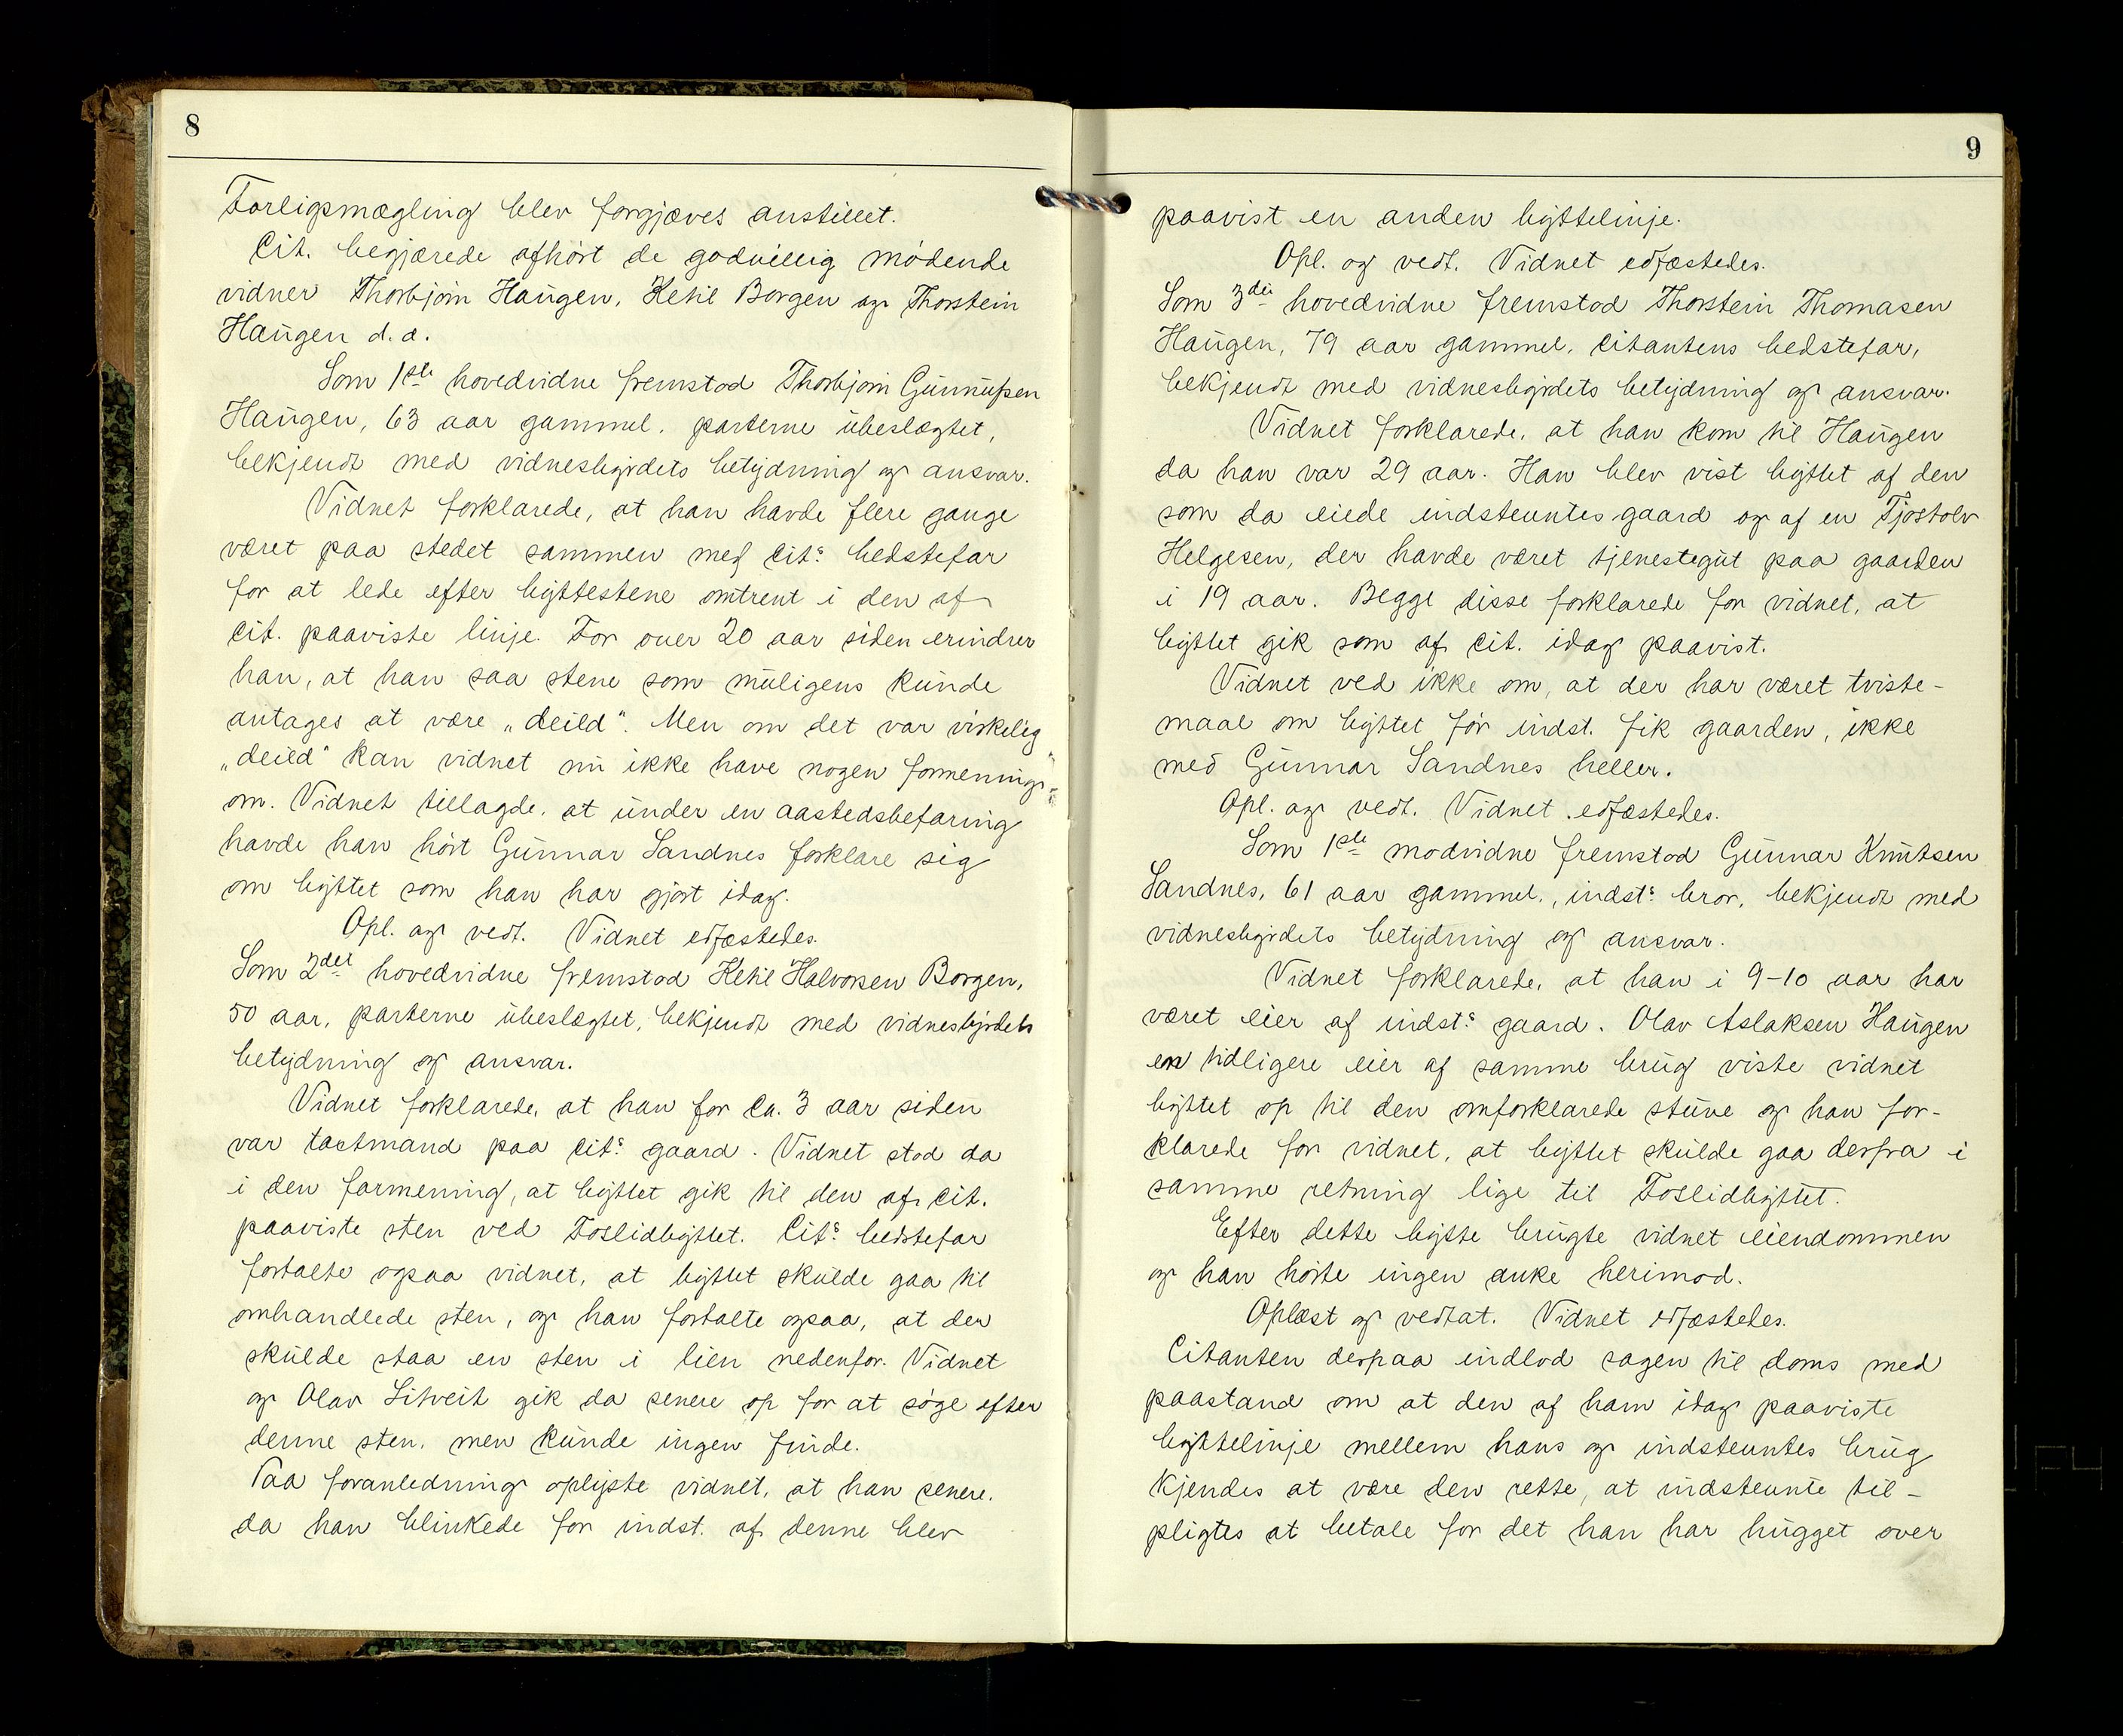 8
Forligsmægling blev forgjæves anstillet.
Cit. begjærede afhørt de godvillig mødende
vidner Thorbjørn Haugen, Ketil Borgen og Thorstein
Haugen d. æ.
Som 1ste hovedvidne fremstod Thorbjørn Gunnufsen
Haugen, 63 aar gammel, parterne ubeslægtet,
bekjendt med vidnesbyrdets betydning og ansvar.
Vidnet forklarede, at han havde flere gange
været paa stedet sammen med cit.s bedstefar
for at lede efter byttestene omtrent i den af
cit. paaviste linje. For over 20 aar siden erindrer
han, at han saa stene som muligens kunde
antages at være „deild“. Men om det var virkelig
„deild“ kan vidnet nu ikke have nogen formening
om. Vidnet tillagde, at under en aastedsbefaring
havde han hørt Gunnar Sandnes forklare sig
om byttet som han har gjort idag.
Opl. og vedt. Vidnet edfæstedes.
Som 2det hovedvidne fremstod Ketil Halvorsen Borgen,
50 aar, parterne ubeslægtet, bekjendt med vidnesbyrdets
betydning og ansvar.
Vidnet forklarede, at han for ca. 3 aar siden
var tastmand paa cit.s gaard. Vidnet stod da
i den formening, at byttet gik til den af cit.
paaviste sten ved Foslidbyttet. Cit.s bedstefar
fortalte ogsaa vidnet, at byttet skulde gaa til
omhandlede sten, og han fortalte ogsaa, at der
skulde staa en sten i lien nedenfor. Vidnet
og Olav Sitveit gik da senere op for at søge efter
denne sten, men kunde ingen finde.
Paa foranledning oplyste vidnet, at han senere,
da han blinkede for indst. af denne blev
9
paavist en anden byttelinje.
Opl. og vedt. Vidnet edfæstedes.
Som 3die hovedvidne fremstod Thorstein Thomasen
Haugen, 79 aar gammel, citantens bedstefar,
bekjendt med vidnesbyrdets betydning og ansvar.
Vidnet forklarede, at han kom til Haugen
da han var 29 aar. Han blev vist byttet af den
som da eiede indstevntes gaard og af en Tjostolv
Helgesen, der havde været tjenestegut paa gaarden
i 19 aar. Begge disse forklarede for vidnet, at
byttet gik som af cit. idag paavist.
Vidnet ved ikke om, at der har været tviste-
maal om byttet før indst. fik gaarden, ikke
med Gunnar Sandnes heller.
Opl. og vedt. Vidnet edfæstedes.
Som 1ste modvidne fremstod Gunnar Knutsen
Sandnes, 61 aar gammel, indst.s bror, bekjendt med
vidnesbyrdets betydning og ansvar.
Vidnet forklarede, at han i 9-10 aar har
været eier af indst.s gaard. Olav Aslaksen Haugen
en tidligere eier af samme brug viste vidnet
byttet op til den omforklarede stuve og han for-
klarede for vidnet, at byttet skulde gaa derfra i
samme retning lige til Foslidbyttet.
Efter dette bytte brugte vidnet eiendommen
og han hørte ingen anke herimod.
Oplæst og vedtat. Vidnet edfæstedes.
Citanten derpaa indlod sagen til doms med
paastand om at den af ham idag paaviste
byttelinje mellem hans og indstevntes brug
kjendes at være den rette, at indstevnte til-
pligtes at betale for det han har hugget over